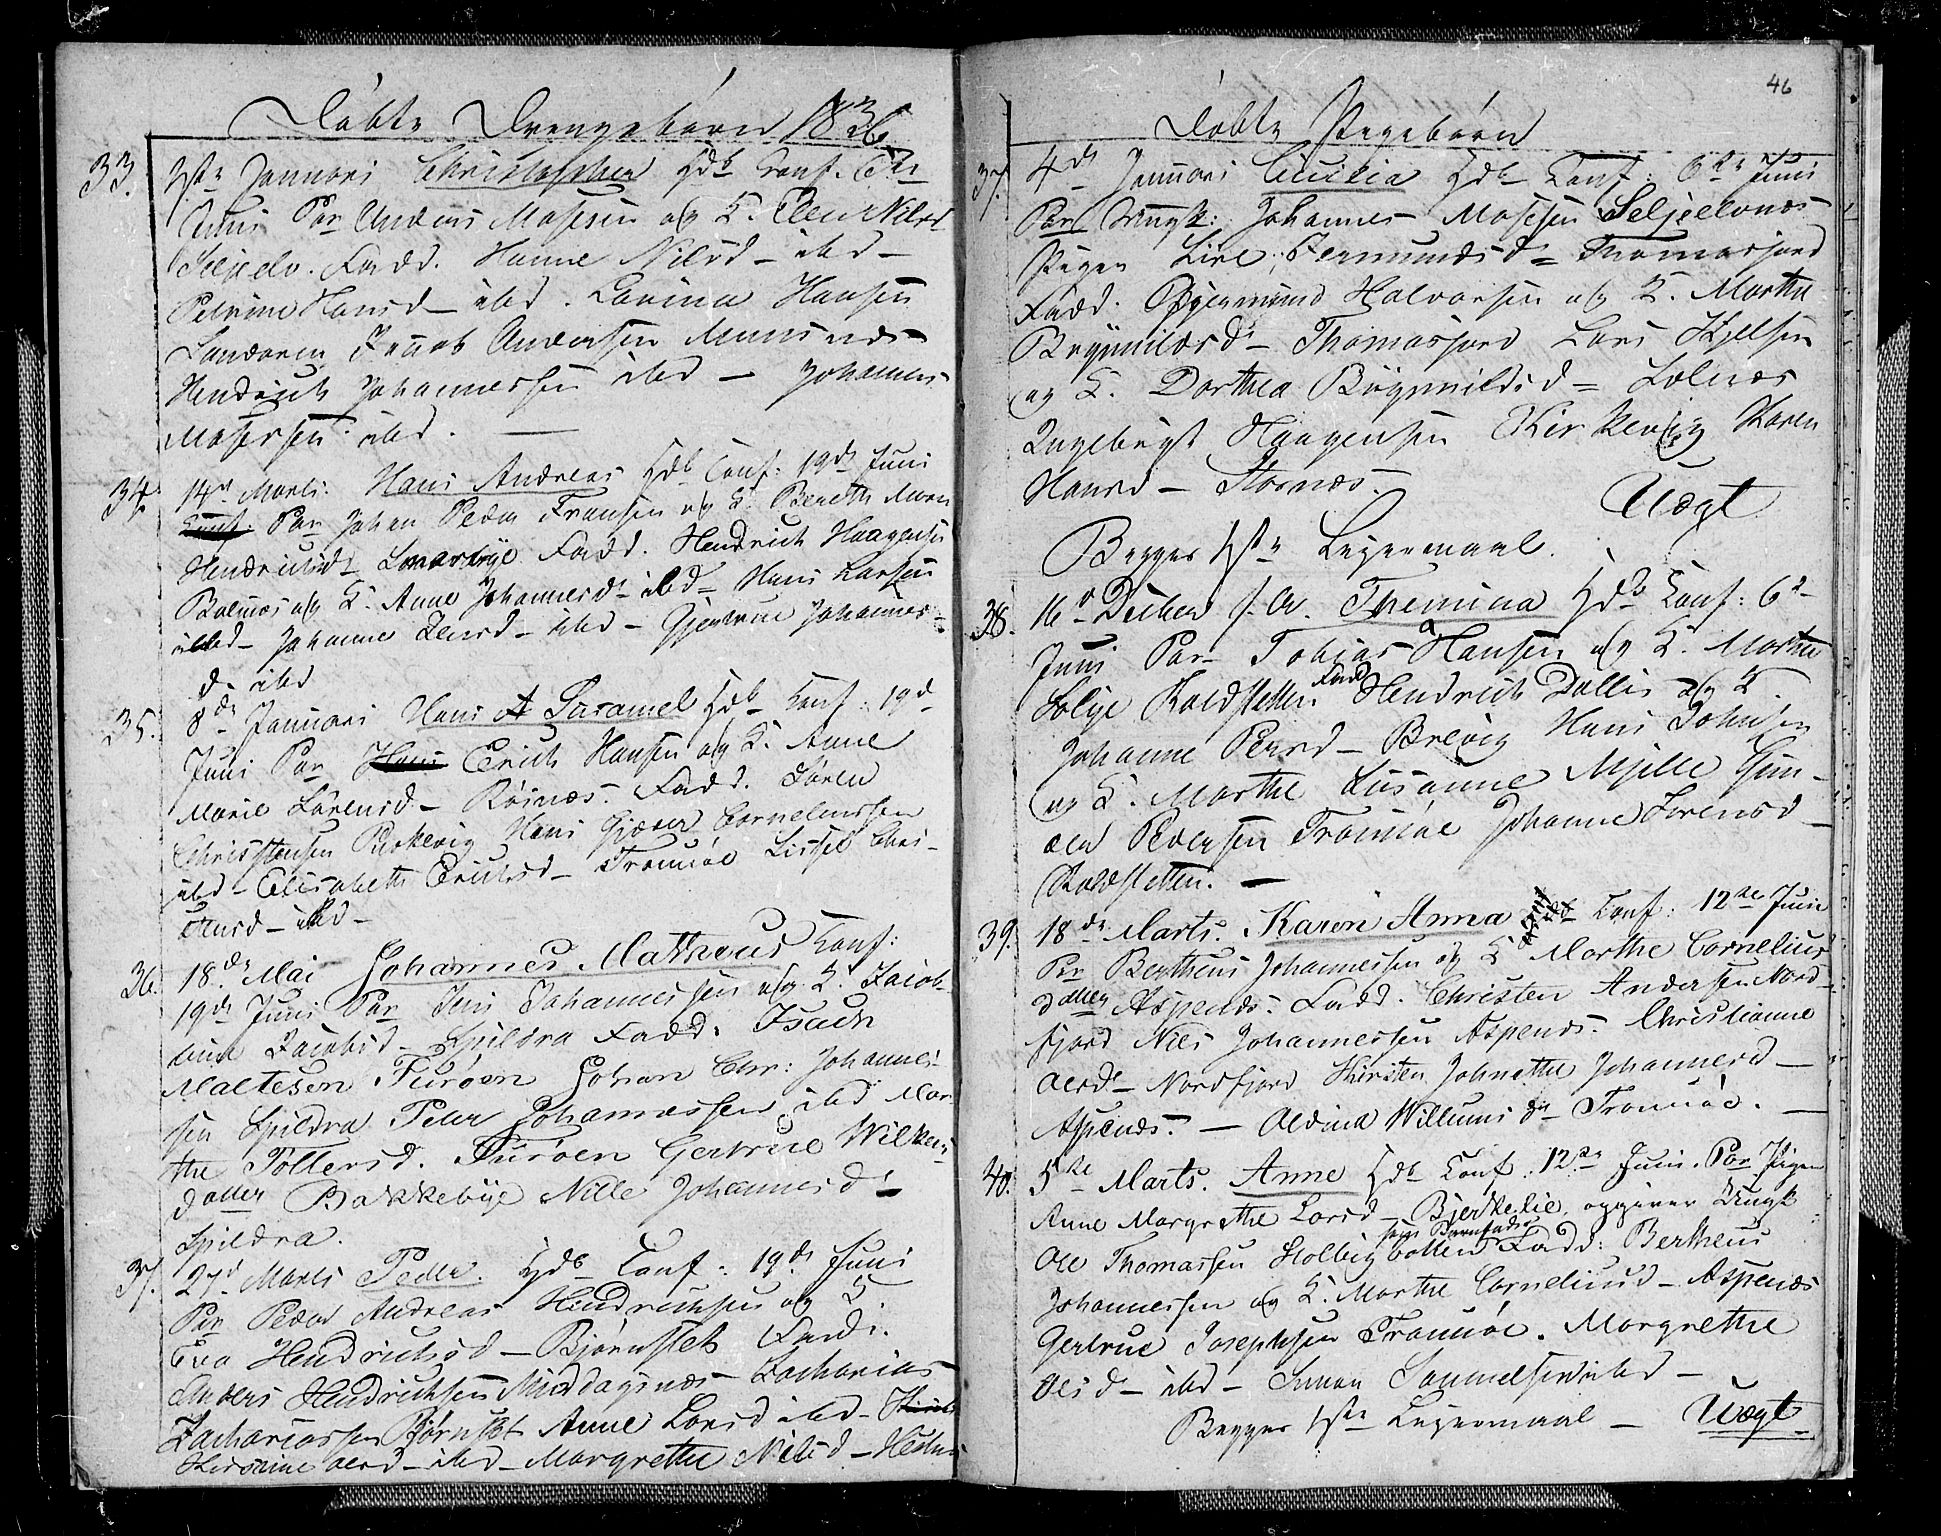 Döbte Drengebørn 1836
33. 1ste Januari Christopher Hdb Conf. 6te
Juni For Anders Mosesen og K. Elen Nilsd
Seljelv. Fadd. Hanne Nilsd - ibd -
Petrine Hansd - ibd. Lovina Hansen
Sandøren Jacob Andersen
Hendrich Johannessen ibd - Johannes
Mosessen ibd. -
34. 14d Marts. Hans Andreas Hdb Conf: 19de Juni
For Johan Peder Fransen og K. Bereth Maria
Hendrichsd Fadd. Hendrich Haagensen
Balsnæs og K. Anne Johannesd - ibd - Hans Larsen
ibd - Johanne Larsd - ibd - Gjertrue Johannes-
d - ibd
35. 8de Januari Hans A Saramel Hdb Conf: 19d
Juni For Erich Hansen og K. Anne
Marie Sørensd - Röinæs. Fadd. Sören
Christensen Kirkevig Hans Gjæver Corneliussen
ibd - Elisabeth Erichsd - Tromsöe Lissel Chri-
stensd - ibd -
36. 18de Mai Johannes Matheus Conf:
19de Juni For Jens Johannessen og K. Jacob-
bina Jacobsd - Spildra Fadd: Isach
Mattesen Turöen Johan Chr: Johannes-
sen Spildra Peder Johannessen ibd Mar-
the Tollersd. Turöen Gertrue Wilkens
datter Bakkebye Nille Johannesd -
Spildra.
37. 27d Marts Peder. Hdb Conf: 19de Juni
For Peder Andreas Hendrichsen og K.
Eva Hendrichsd - Bjørnslet Fadd.
Anders Hendrichsen Middagsnæs - Zacharias
Zachariassen Bjørnslet Anne Larsd ibd -
Olsd - ibd - Margrethe Nilsd -
46
Döbte Pigebørn
37. 4de Januari Cicilia Hdb Conf: 6te Juni
For Ungk: Johannes Mosesen Seljeelvnæs
Pigen Live Jermundsd - Thomasjord
Fadd. Jermund Halvorsen og K. Marthe
Brynnildsd - Thomasjord Lars Kjelsen
og K. Dorthea Brynnildsd - Solnæs
Ingebrigt Haagensen Kirkevig Karen
Hansd - Stornæs.
Begges 1ste Lejermaal. Uægt
38. 16d Decber f. A. Themina Hdb Conf: 6t
Juni For Tobias Hansen og K. Marthe
Solye Koldsletten Fadd Hendrich Dallis og K.
Johanne Persd - Brevig Hans Johnsen
og K. Marthe Susanne Mjelle Gun-
der Pedersen Tromsöe Johanne Sorensd -
Koldsletten. -
39. 18de Marts. Karen Anna Hdb Conf: 12te Juni
For Bertheus Johannessen og K Marthe Cornelius
datter Aspenæs. Fadd. Christen Andersen Nord-
fjord Niels Johannessen Aspenæs. Christianne
Olsd - Nordfjord Kirsten Johnette Johannesd -
Aspenæs. - Oldina Willumsdr Tromsöe. -
40. 5te Marts. Anne Hdb Conf: 12te Juni. For Pigen
Anne Margrethe Larsd - Bjerkelie, opgiver Ungk
som Barnefader
Ole Thomassen Stolbigbotten Fadd: Bertheus
Johannessen og K. Marthe Corneliusd - Aspenæs
Gertrue Josephsen Tromsöe. Margrethe
Olsd - ibd - Simon Samuelsen ibd -
Begges 1ste Lejermaal - Uægt